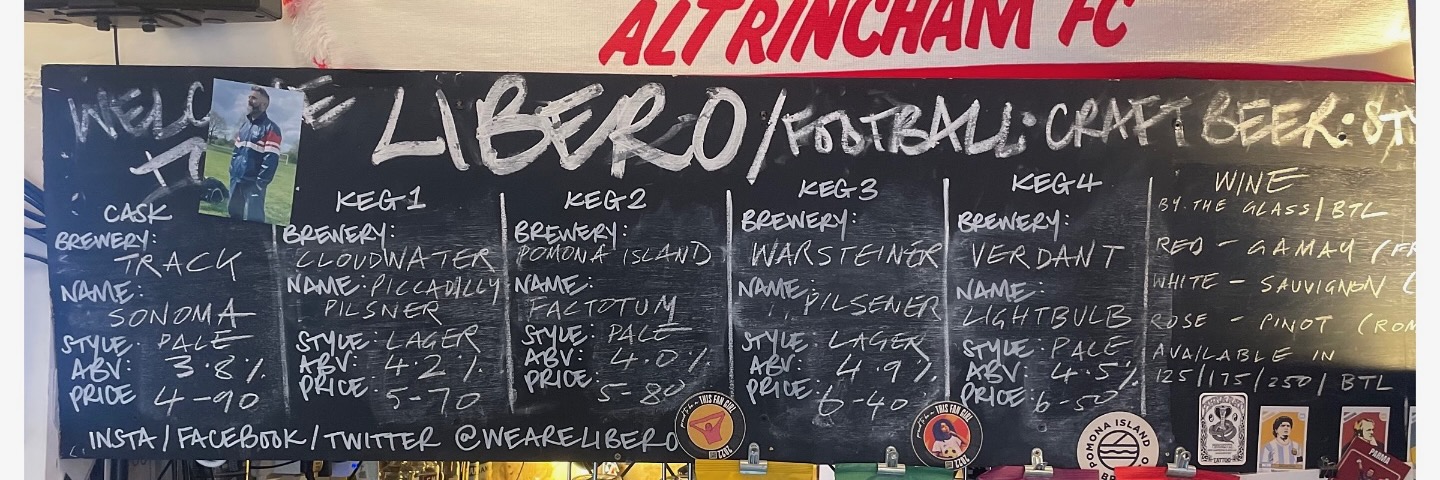 ALTRINCHAM FC
WELCOME
LIBERO/FOOTBALL·CRAFT BEER·
CASK
BREWERY:
TRACK
NAME:
SONOMA
STYLE: PALE
ABV: 3.8%
PRICE 4-90
KEG 1
BREWERY:
CLOUDWATER
NAME: PICCADILLY
PILSNER
STYLE: LAGER
ABV: 4.2%
PRICE: 5-70
KEG 2
BREWERY:
POMONA ISLAND
NAME:
FACTOTUM
STYLE: PALE
ABV: 4.0%
PRICE: 5-80
KEG 3
BREWERY:
WARSTEINER
NAME:
PILSENER
STYLE: LAGER
ABV: 4.9%
PRICE: 6-40
KEG 4
BREWERY:
VERDANT
NAME:
LIGHTBULB
STYLE: PALE
ABV: 4.5%
PRICE: 6-50
WINE
BY THE GLASS/BTL
RED - GAMAY
WHITE - SAUVIGNON
ROSE - PINOT
AVAILABLE IN
125/175/250/ BTL
INSTA/FACEBOOK/TWITTER @WEARELIBERO
THIS FAN GIRL
THIS FAN GIRL
POMONA ISLAND
PARMA